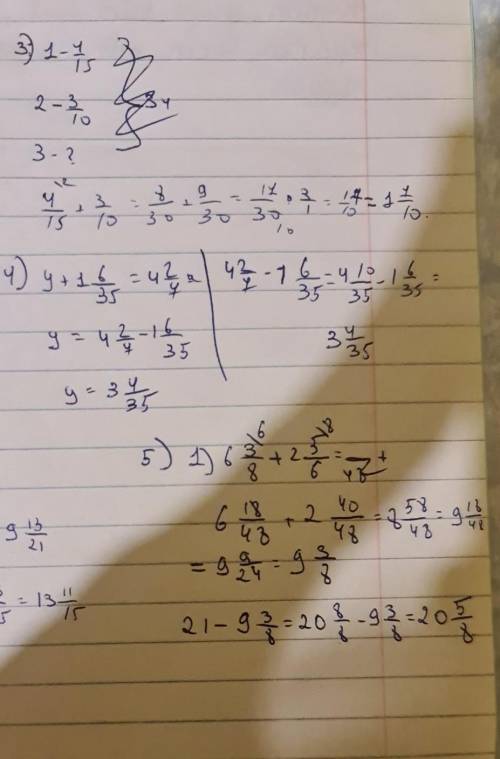 3) 1 - 4/15
2 - 3/10 3ч
3 - ?
4/15 + 3/10 = 8/30 + 9/30 = 17/30 · 3/1 = 17/10 = 1 7/10.
4) y + 1 6/35 = 4 2/7
y = 4 2/7 - 1 6/35
y = 3 4/35
4 2/7 - 1 6/35 = 4 10/35 - 1 6/35 =
3 4/35
5) 1) 6 3/8 + 2 5/6 =
6 18/48 + 2 40/48 = 8 58/48 = 9 18/48
= 9 9/24 = 9 3/8
21 - 9 3/8 = 20 8/8 - 9 3/8 = 20 5/8
9 13/21
= 13 11/15